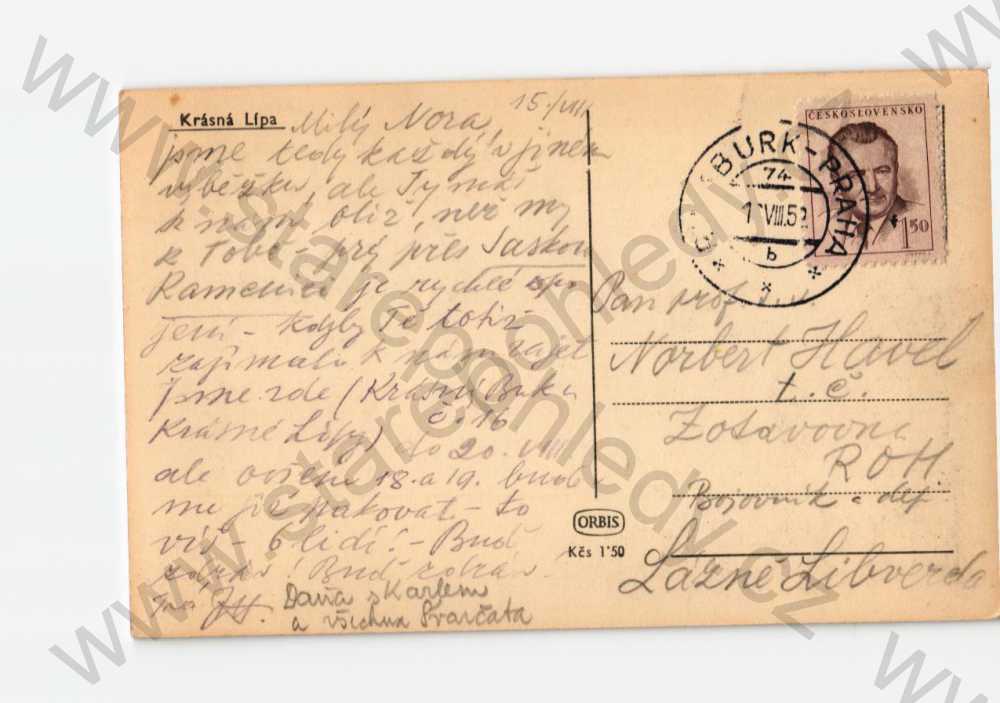 Krásná Lípa
15./VIII.
Milý Nora,
jsme tedy každý v jiném
výběžku, ale Ty máš
k nám blíž, než my
k Tobě - prý přes Saskou
Kamenici je rychlé spo
jení - kdyby Tě totiž
zajímalo k nám zajet
jsme zde (Krásný Buk u
č. 16
Krásné Lípy) do 20. VIII
ale ovšem 18. a 19. bude
me již pakovat - to
víš - 6 lidí! - Buď
zdráv! Buď zdráv
Dáňa s Karlem
a všichna Švarčata
ČESKOSLOVENSKO
1.50
BURK-PRAHA
74
VIII.52
b
Pan prof.
Norbert Havel
t. č.
Zotavovna
ROH.
Bojovník
Lázně Libverda
ORBIS
Kčs 1'50
www.starepohledy.cz